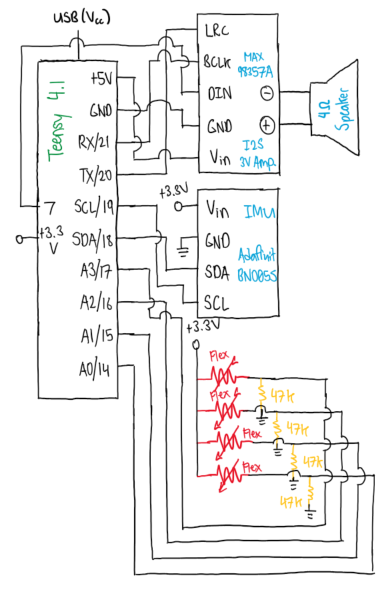 USB(Vcc)
Teensy 4.1
+5V
GND
RX/21
TX/20
SCL/19
SDA/18
A3/17
A2/16
A1/15
A0/14
7
+3.3
V
LRC
BCLK
DIN
GND
Vin
MAX
98357A
I2S
3V Amp.
4Ω
Speaker
+3.3V
Vin
GND
SDA
SCL
IMU
Adafruit
BN0855
+3.3V
Flex
Flex
Flex
Flex
47k
47k
47k
47k